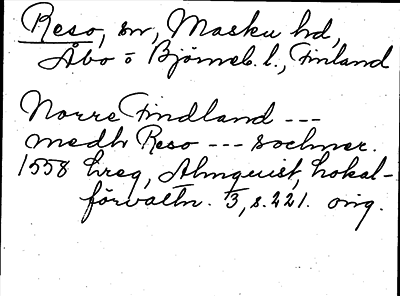 Reso, sn, Masku hd,
Åbo o Björneb. l., Finland
Norre Findland ---
medh Reso --- sochner.
1558 Ereg, Almquist, Lokal-
förvaltn. 3, s. 221. orig.